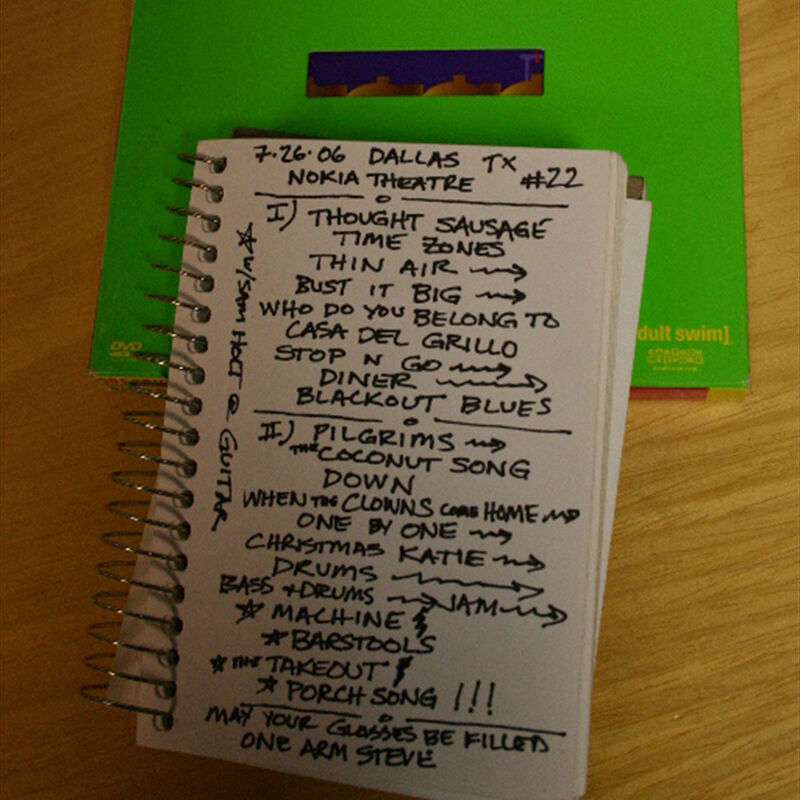 7.26.06 DALLAS TX
NOKIA THEATRE #22
I) THOUGHT SAUSAGE
TIME ZONES
THIN AIR →
BUST IT BIG →
WHO DO YOU BELONG TO
CASA DEL GRILLO
STOP N GO →
DINER →
BLACKOUT BLUES
II) PILGRIMS →
THE COCONUT SONG
DOWN
WHEN THE CLOWNS COME HOME →
ONE BY ONE →
CHRISTMAS KATIE →
DRUMS →
BASS + DRUMS → JAM →
☆ MACHINE
☆ BARSTOOLS
☆ THE TAKEOUT
☆ PORCH SONG !!!
MAY YOUR GLASSES BE FILLED
ONE ARM STEVE
☆ W/SAM HOLT @ GUITAR
DVD
dult swim]